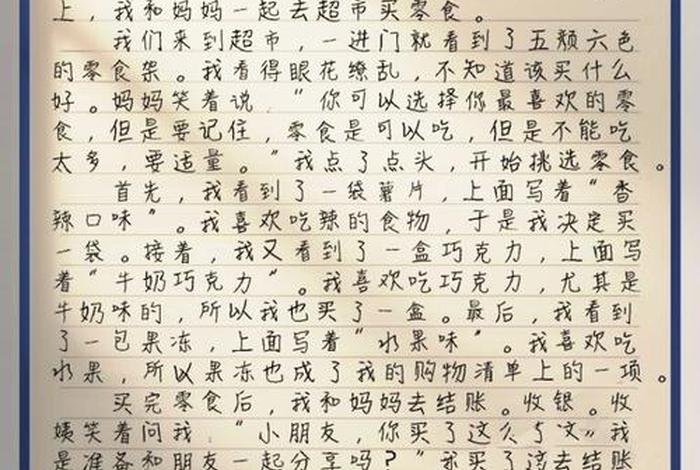 上，我和妈妈一起去超市买零食。
我们来到超市，一进门就看到了五颜六色
的零食架。我看得眼花缭乱，不知道该买什么
好。妈妈笑着说："你可以选择你最喜欢的零
食，但是要记住，零食是可以吃，但是不能吃
太多，要适量。"我点了点头，开始挑选零食。
首先，我看到了一袋薯片，上面写着"香
辣口味"。我喜欢吃辣的食物，于是我决定买
一袋。接着，我又看到了一盒巧克力，上面写
着"牛奶巧克力"。我喜欢吃巧克力，尤其是
牛奶味的，所以我也买了一盒。最后，我看到
了一包果冻，上面写着"水果味"。我喜欢吃
水果，所以果冻也成了我的购物清单上的一项。
买完零食后，我和妈妈去结账。收银。收
姨笑着问我："小朋友，你买了这么
是准备和朋友一起分享吗？" 买了 去结账